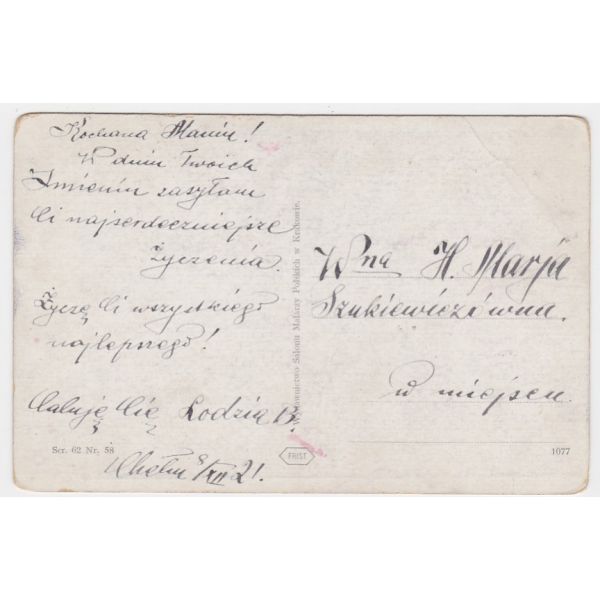 Kochana Maniu!
W dniu Twoich
Imienin zasyłam
Ci najserdeczniejsze
życzenia.
Życzę Ci wszystkiego
najlepszego!
Całuję Cię Lodzia B.
Chełm 8/XII 21.
Ser. 62 Nr. 58
Wydawnictwo Salonu Malarzy Polskich w Krakowie.
FRIST
Wpna H. Marja
Szukiewiczówna.
w miejscu.
1077